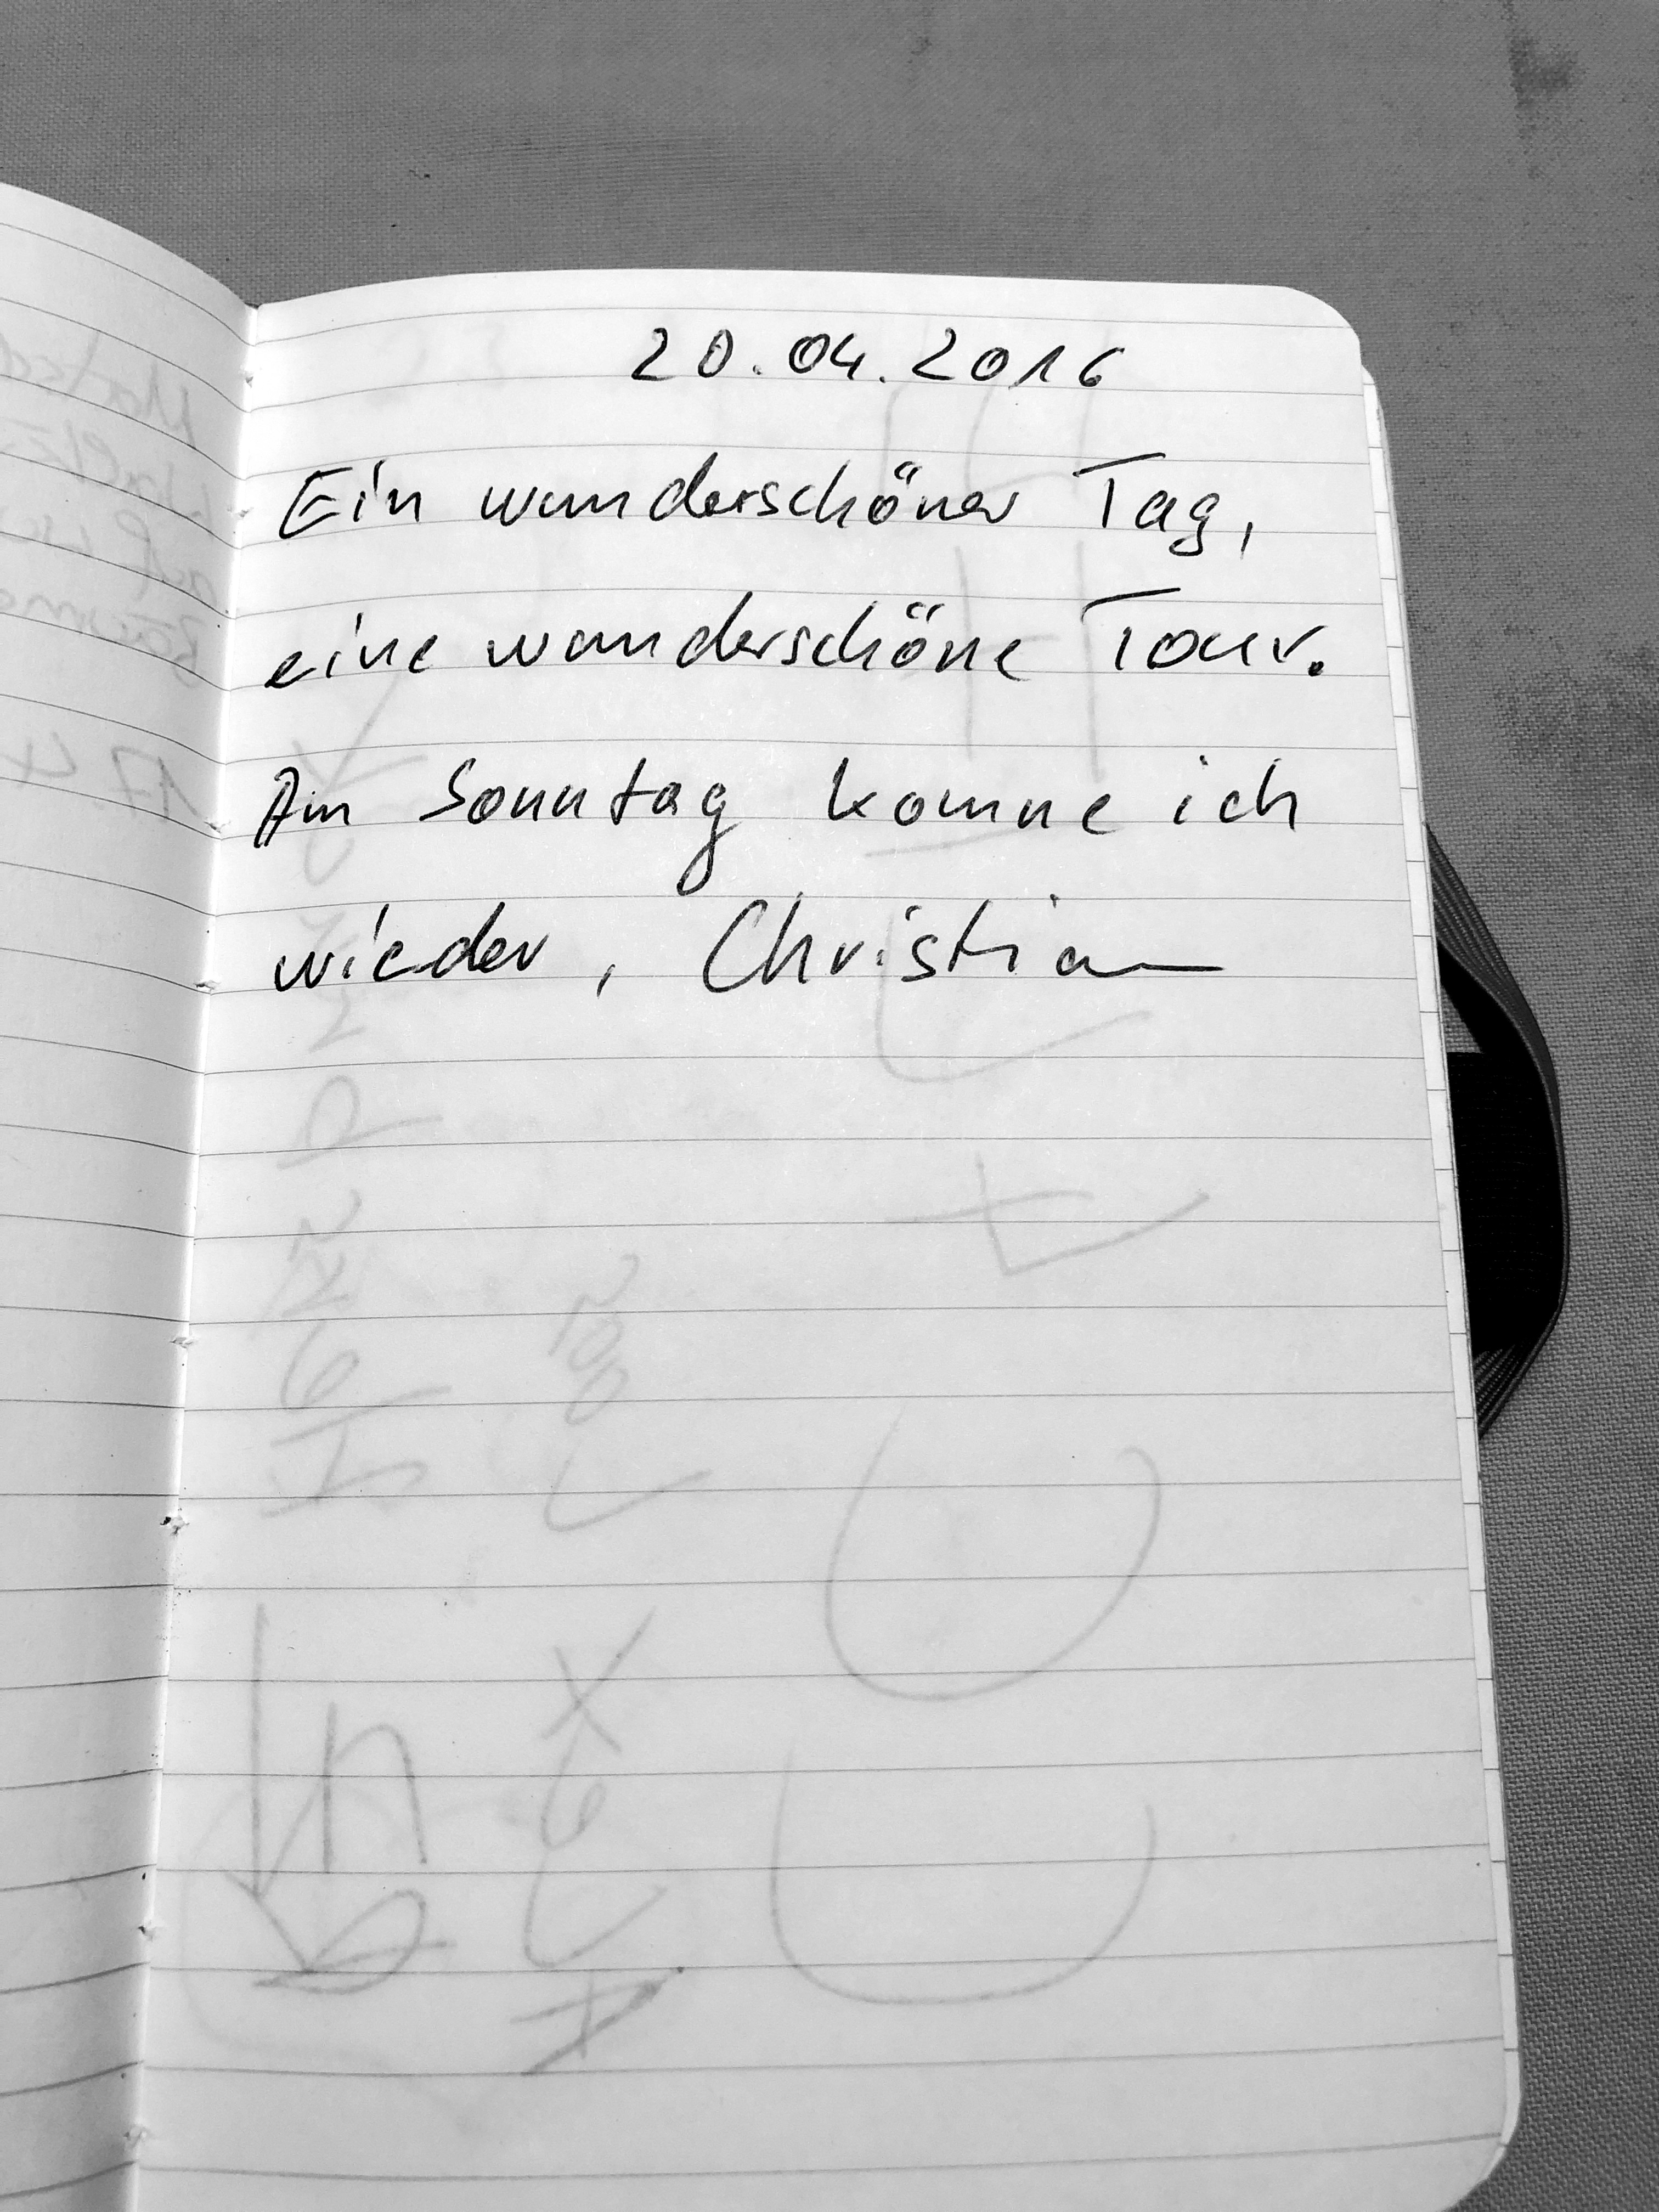 20.04.2016
Ein wunderschöner Tag,
eine wunderschöne Tour.
Am Sonntag komme ich
wieder, Christian